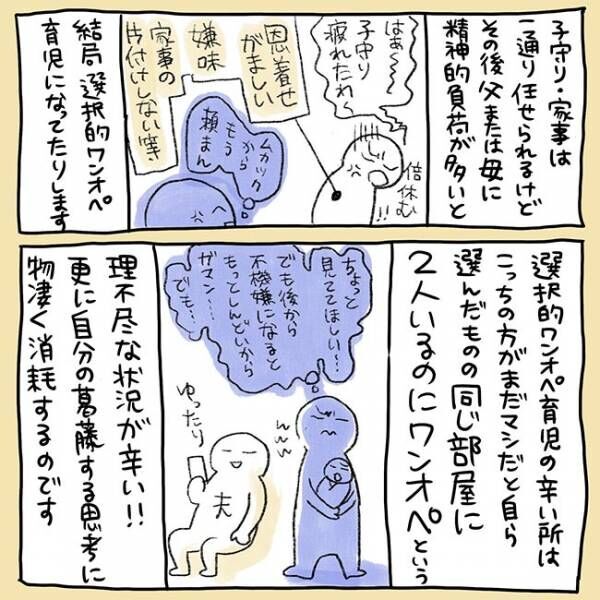 子守り・家事は
一通り任せられるけど
その後父または母に
精神的負荷が多いと
はぁ〜
子守り
疲れたわ〜
倍休む!!
恩着せ
がましい
嫌味
家事の
片付けしない等
ムカツク
から
もう
頼まん
結局選択的ワンオペ
育児になってたりします
選択的ワンオペ育児の辛い所は
こっちの方がまだマシだと自ら
選んだものの同じ部屋に
2人いるのにワンオペという
ちょっと
見ててほしい…!
でも後から
不機嫌になると
もっとしんどいから
ガマン……
でも…
ゆったり
夫
理不尽な状況が辛い!!
更に自分の葛藤する思考に
物凄く消耗するのです